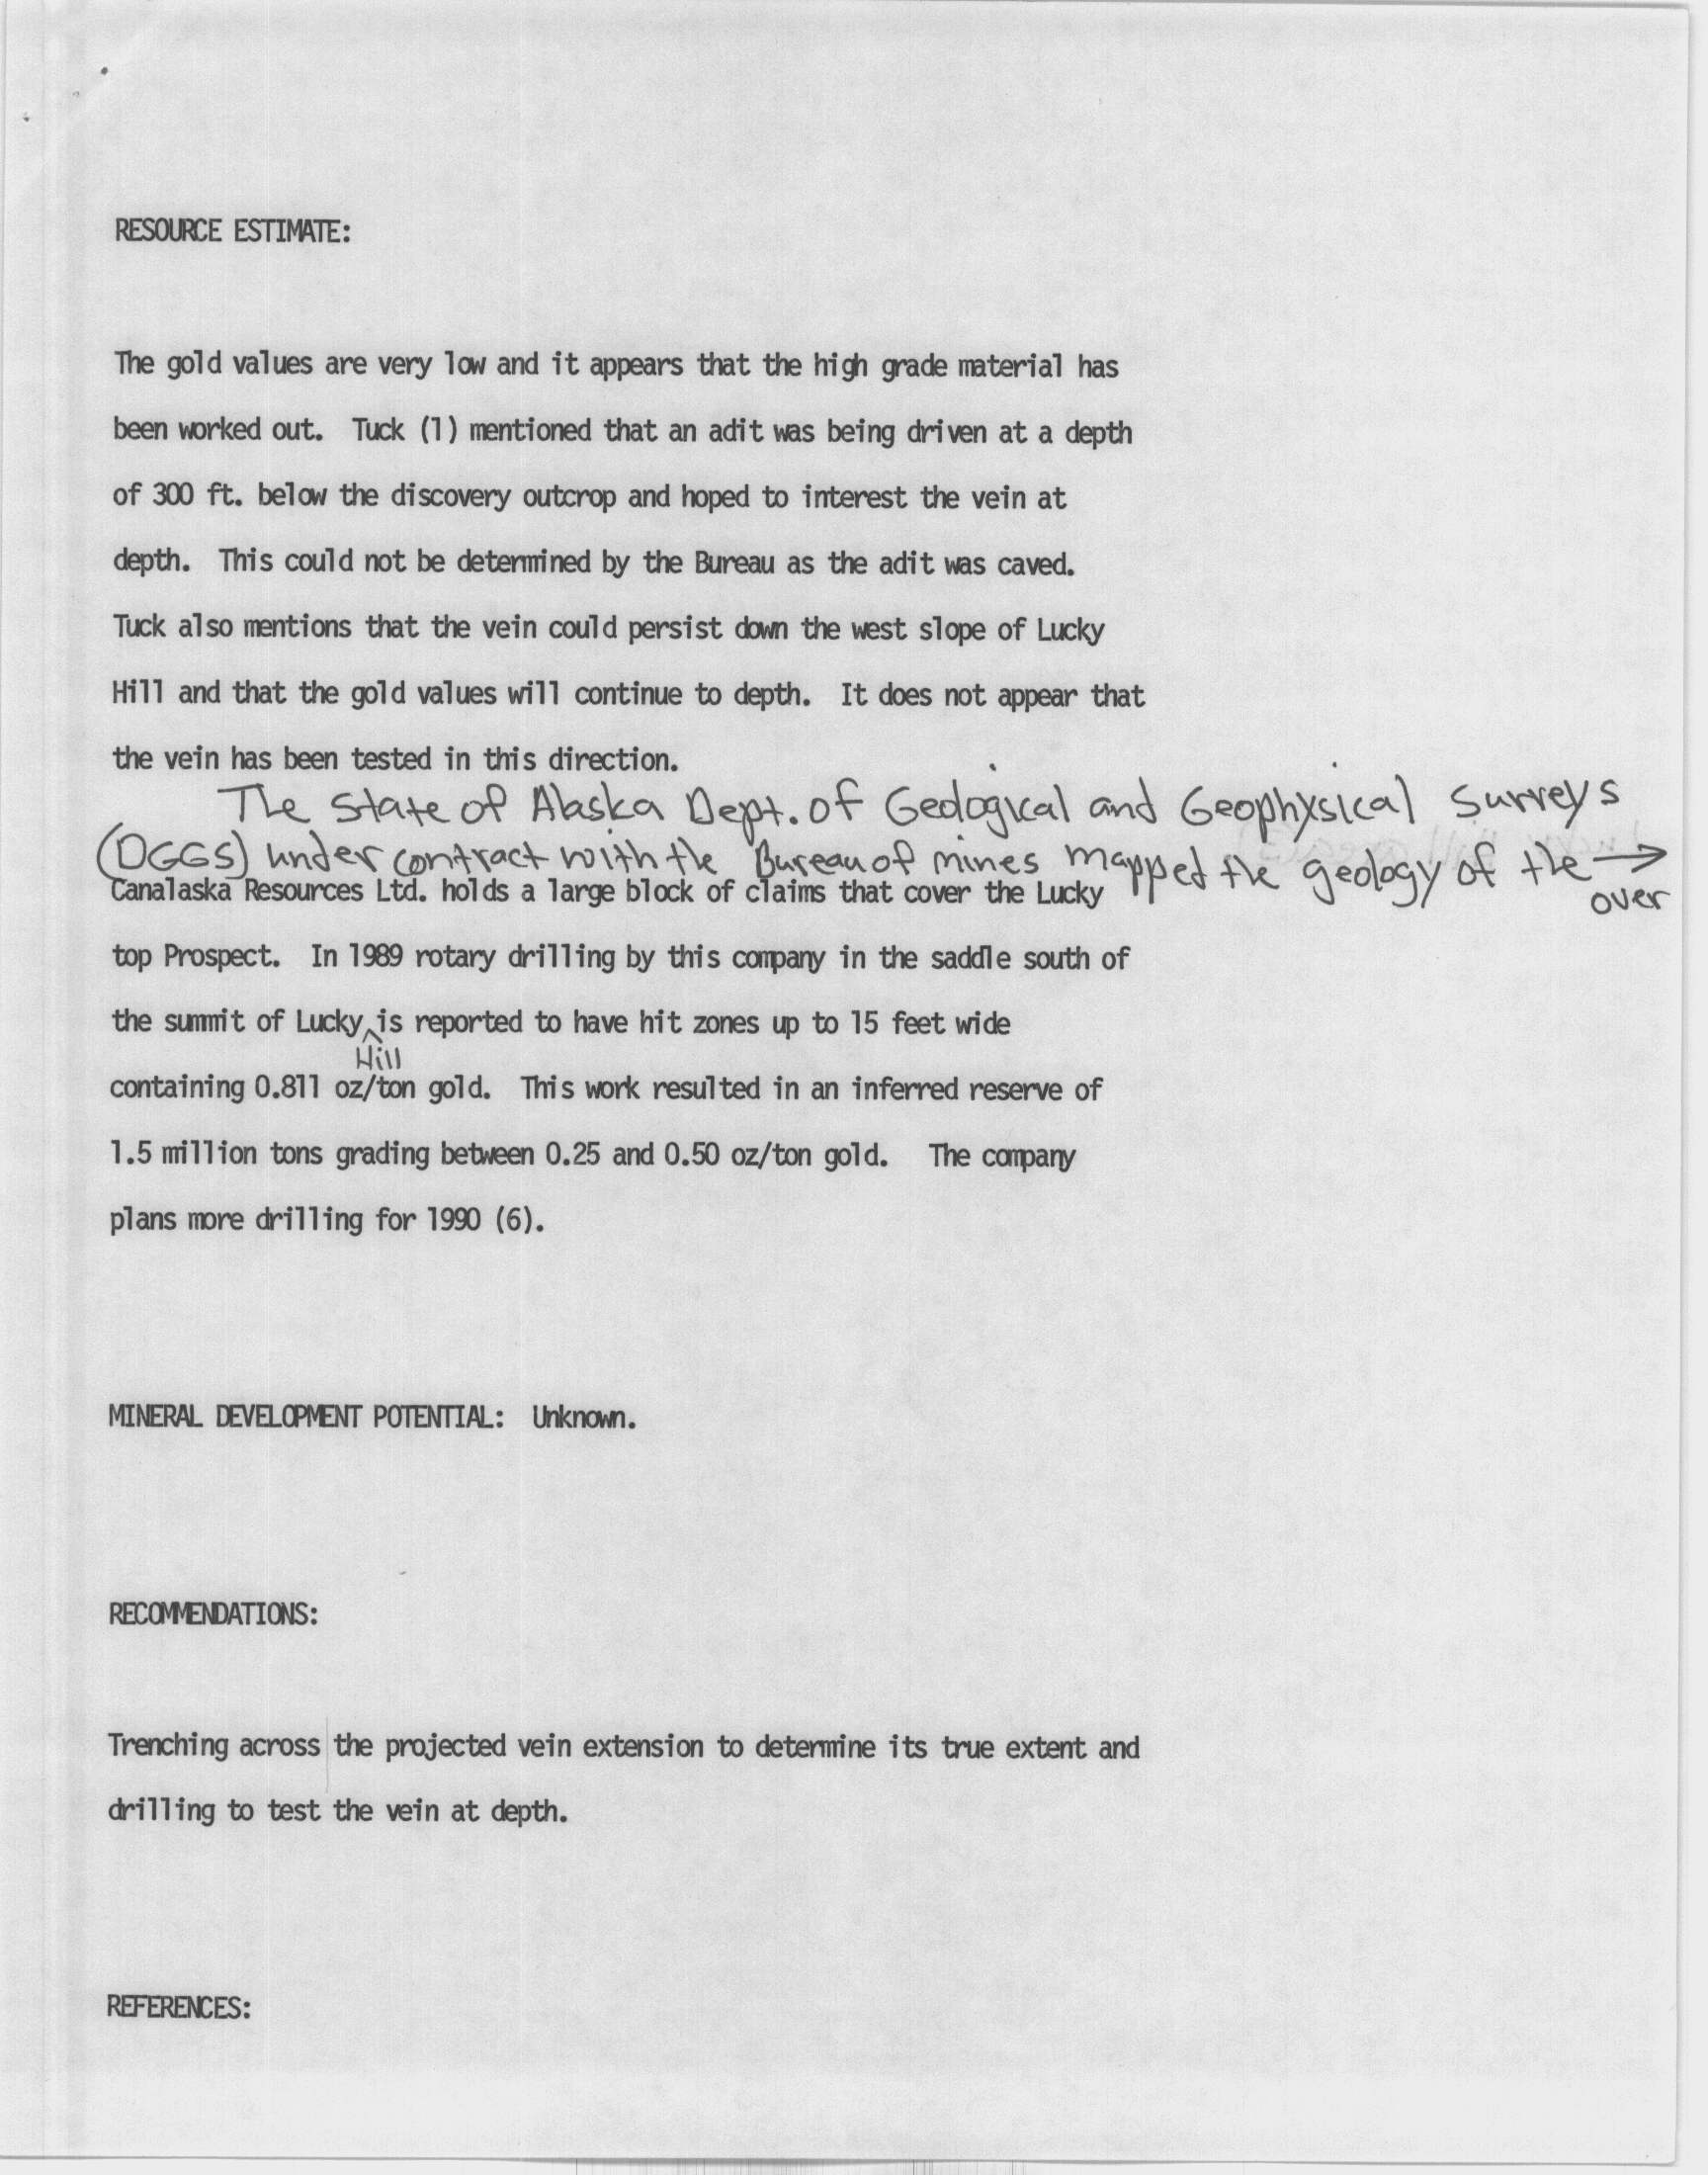 RESOURCE ESTIMATE:
The gold values are very low and it appears that the high grade material has
been worked out. Tuck (1) mentioned that an adit was being driven at a depth
of 300 ft. below the discovery outcrop and hoped to interest the vein at
depth. This could not be determined by the Bureau as the adit was caved.
Tuck also mentions that the vein could persist down the west slope of Lucky
Hill and that the gold values will continue to depth. It does not appear that
the vein has been tested in this direction.
The State of Alaska Dept. of Geological and Geophysical Surveys
(DGGS) under contract with the Bureau of mines mapped the geology of the →
over
Canalaska Resources Ltd. holds a large block of claims that cover the Lucky
top Prospect. In 1989 rotary drilling by this company in the saddle south of
the summit of Lucky ^ is reported to have hit zones up to 15 feet wide
Hill
containing 0.811 oz/ton gold. This work resulted in an inferred reserve of
1.5 million tons grading between 0.25 and 0.50 oz/ton gold. The company
plans more drilling for 1990 (6).
MINERAL DEVELOPMENT POTENTIAL: Unknown.
RECOMMENDATIONS:
Trenching across the projected vein extension to determine its true extent and
drilling to test the vein at depth.
REFERENCES: